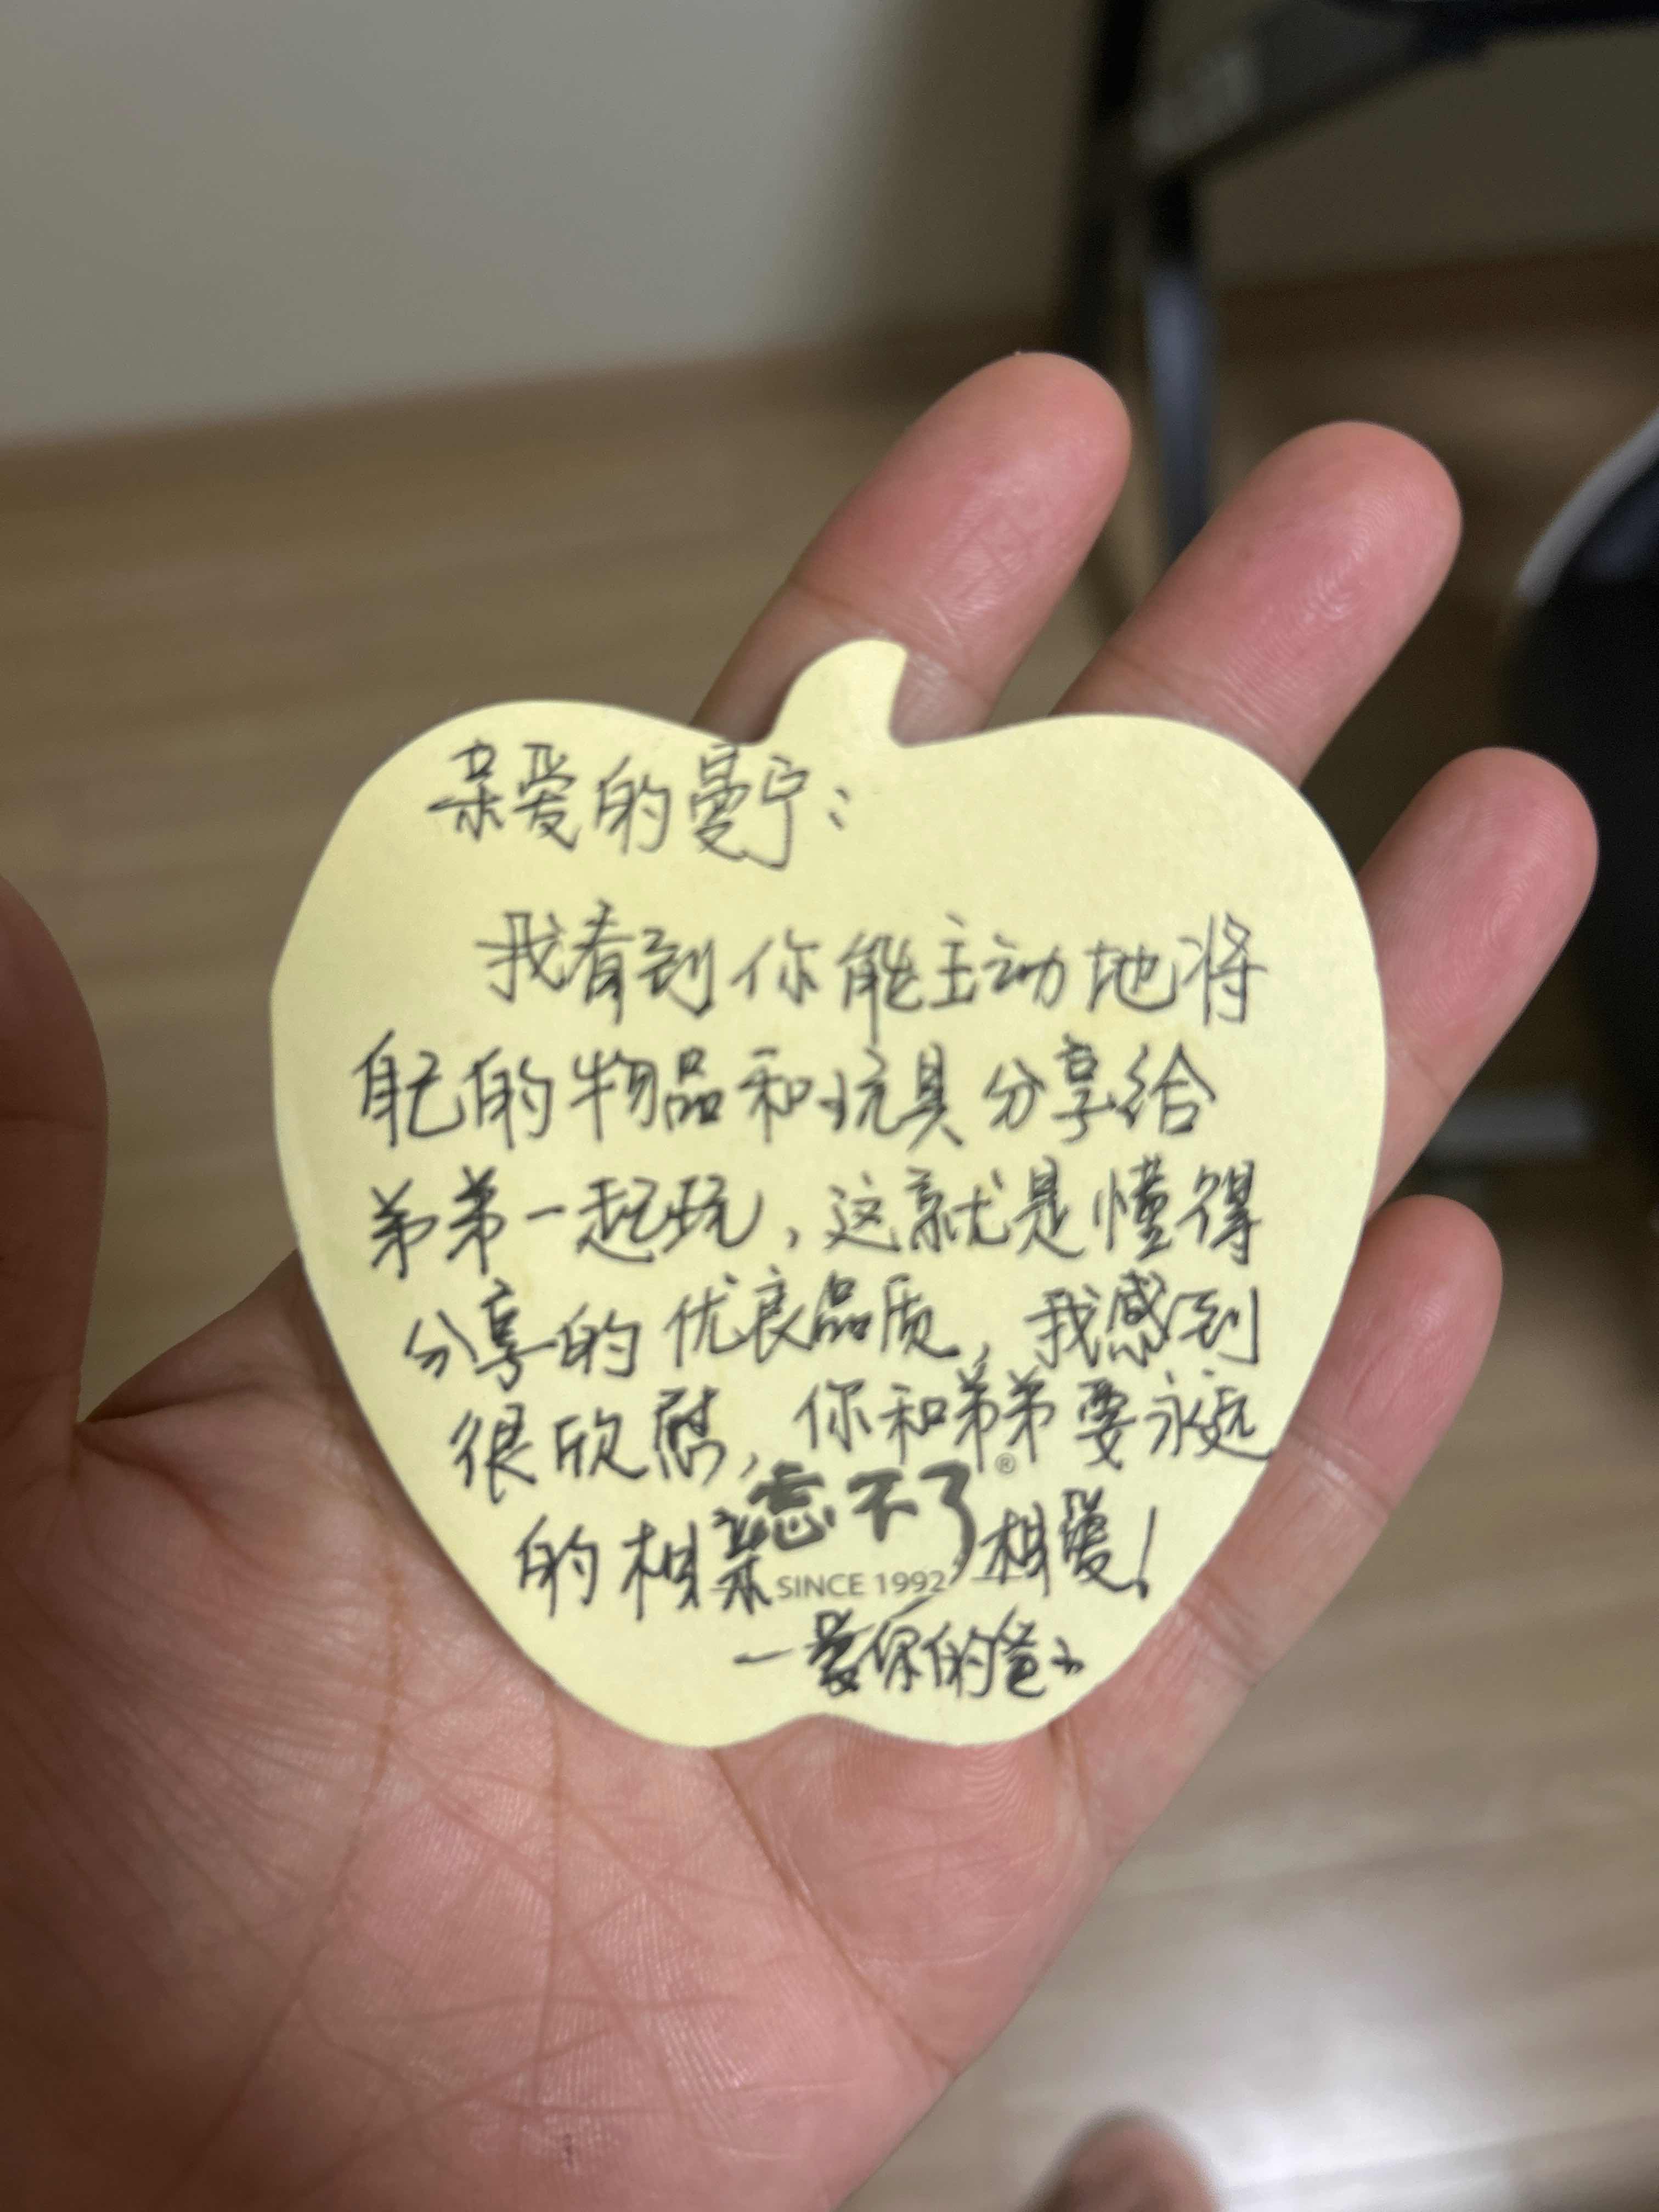 亲爱的曼宁：
我看到你能主动地将
自己的物品和玩具分享给
弟弟一起玩，这就是懂得
分享的优良品质，我感到
很欣慰，你和弟弟要永远
的相亲 相爱！
忘不了®
SINCE 1992
—爱你的爸爸